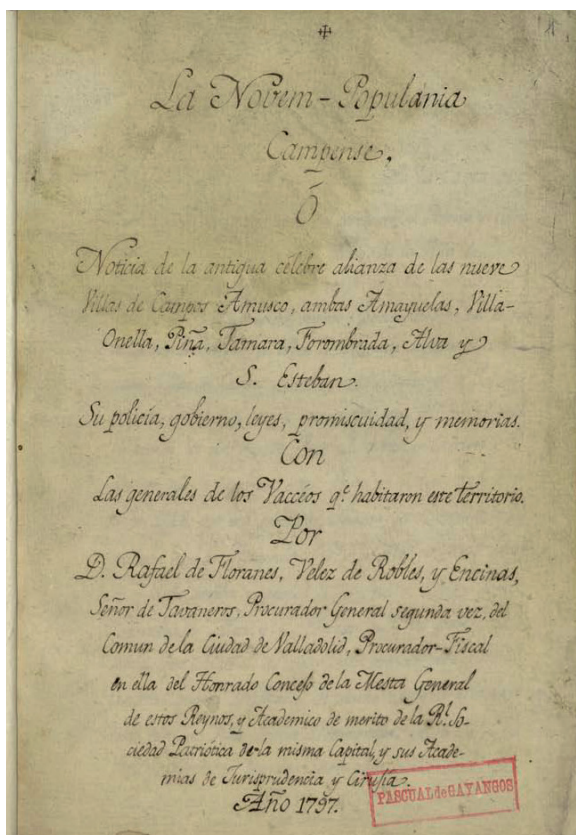 La Novem-Populania
Campense,
Ó
Noticia de la antigua célebre alianza de las nueve
Villas de Campos Amusco, ambas Amayuelas, Villa-
Onella, Piña, Tamara, Forombrada, Alva y
S. Esteban.
Su policía, gobierno, leyes, promiscuidad, y memorias.
Con
Las generales de los Vaccéos q.e habitaron este territorio.
Por
D. Rafael de Floranes, Velez de Robles, y Encinas,
Señor de Tavaneros, Procurador General segunda vez, del
Comun de la Ciudad de Valladolid, Procurador-Fiscal
en ella del Honrado Concejo de la Mesta General
de estos Reynos, y Academico de merito de la Rl. So-
ciedad Patriótica de la misma Capital, y sus Acade-
mias de Jurisprudencia y Cirujía.
Año 1797.
PASCUAL de GAYANGOS